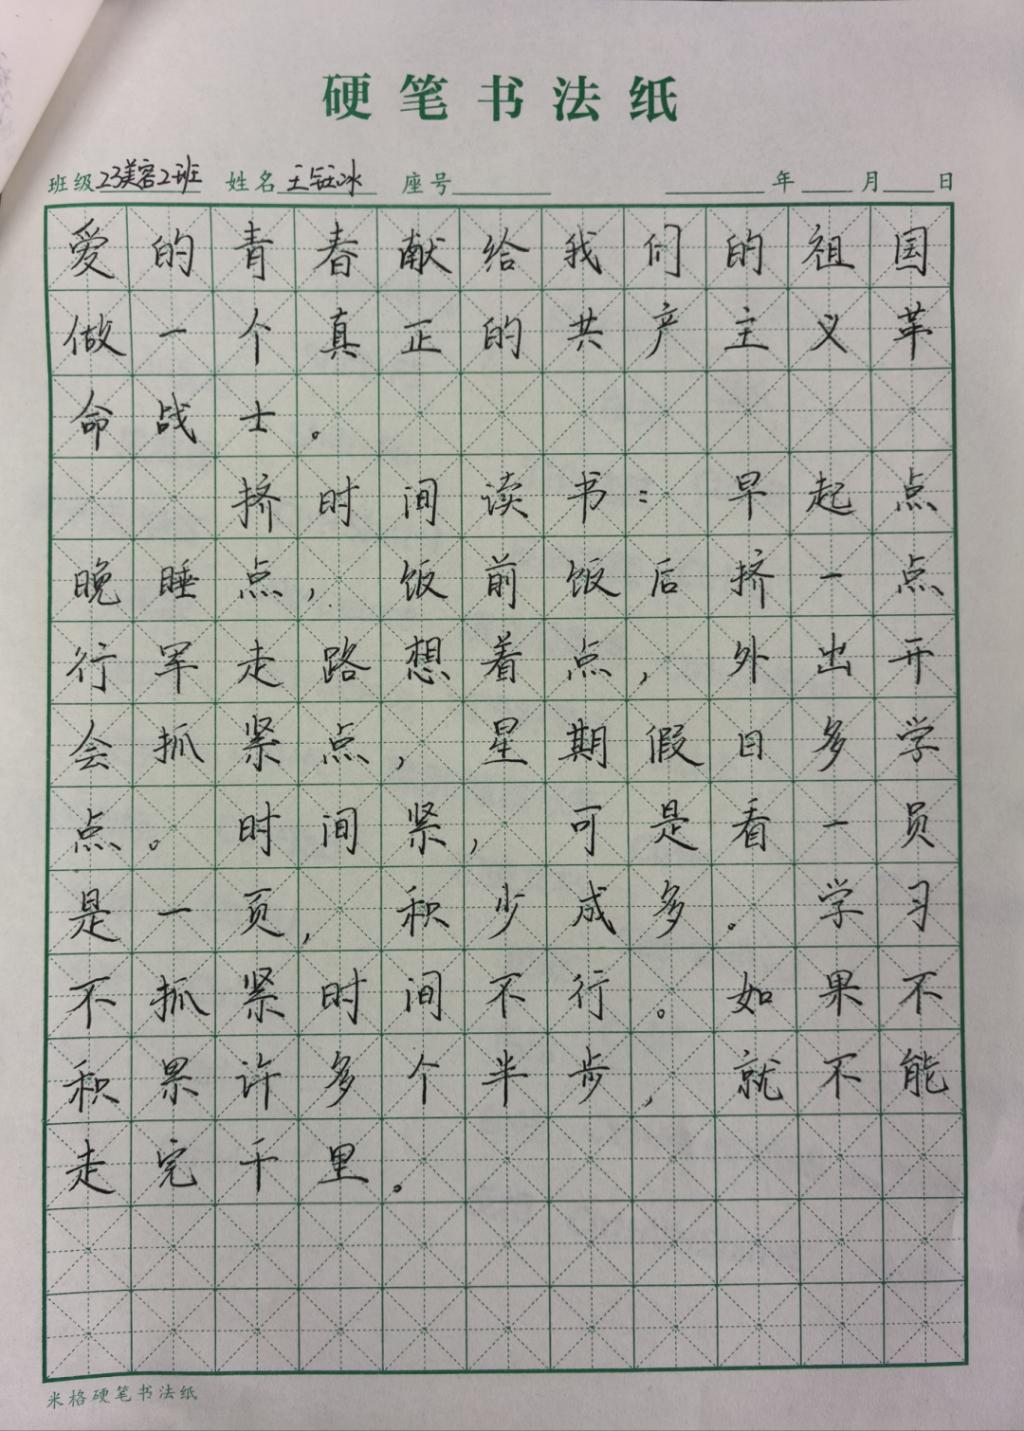 硬笔书法纸
班级 23美容2班 姓名 王钰冰 座号 年 月 日
爱的青春献给我们的祖国
做一个真正的共产主义革
命战士。
挤时间读书：早起点
晚睡点，饭前饭后挤一点
行军走路想着点，外出开
会抓紧点，星期假日多学
点。时间紧，可是看一员
是一页，积少成多。学习
不抓紧时间不行。如果不
积累许多个半步，就不能
走完千里。
米格硬笔书法纸